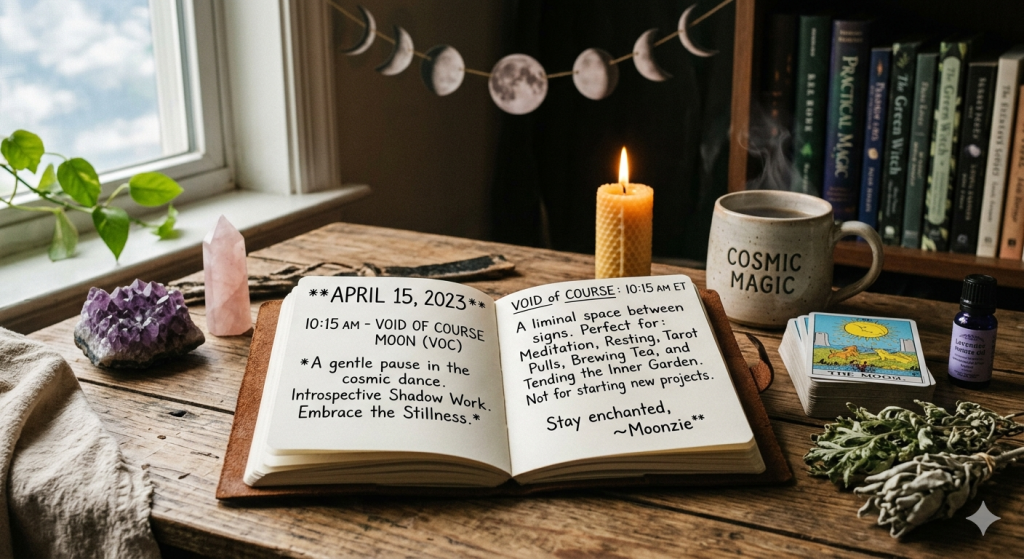 **APRIL 15, 2023**
10:15 AM - VOID OF COURSE
MOON (VOC)
*A gentle pause in the
cosmic dance.
Introspective Shadow Work.
Embrace the Stillness.*
VOID of COURSE: 10:15 AM ET
A liminal space between
signs. Perfect for:
Meditation, Resting, Tarot
Pulls, Brewing Tea, and
Tending the Inner Garden.
Not for starting new projects.
Stay enchanted,
~Moonzie**
COSMIC
MAGIC
THE MOON.
PRACTICAL MAGIC
The Green Witch
The Green Witch